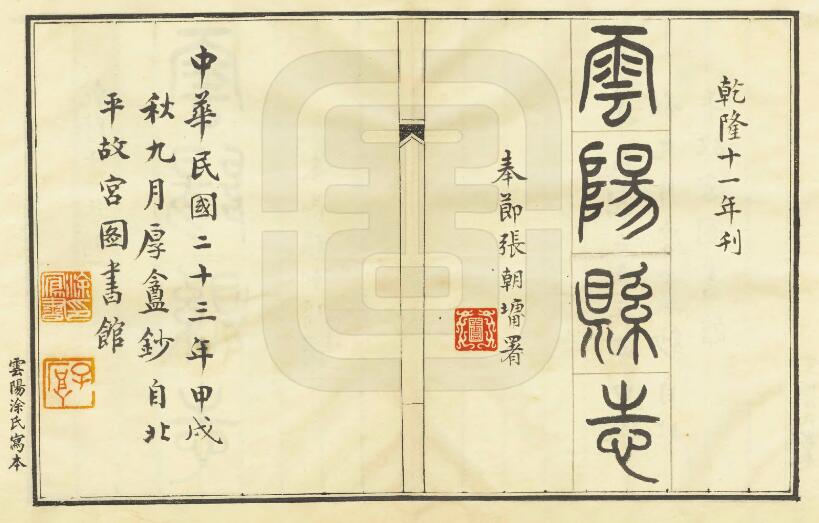 乾隆十一年刊
雲陽縣志
奉節張朝墉署
中華民國二十三年甲戌
秋九月厚盦鈔自北
平故宮圖書館
雲陽涂氏寫本